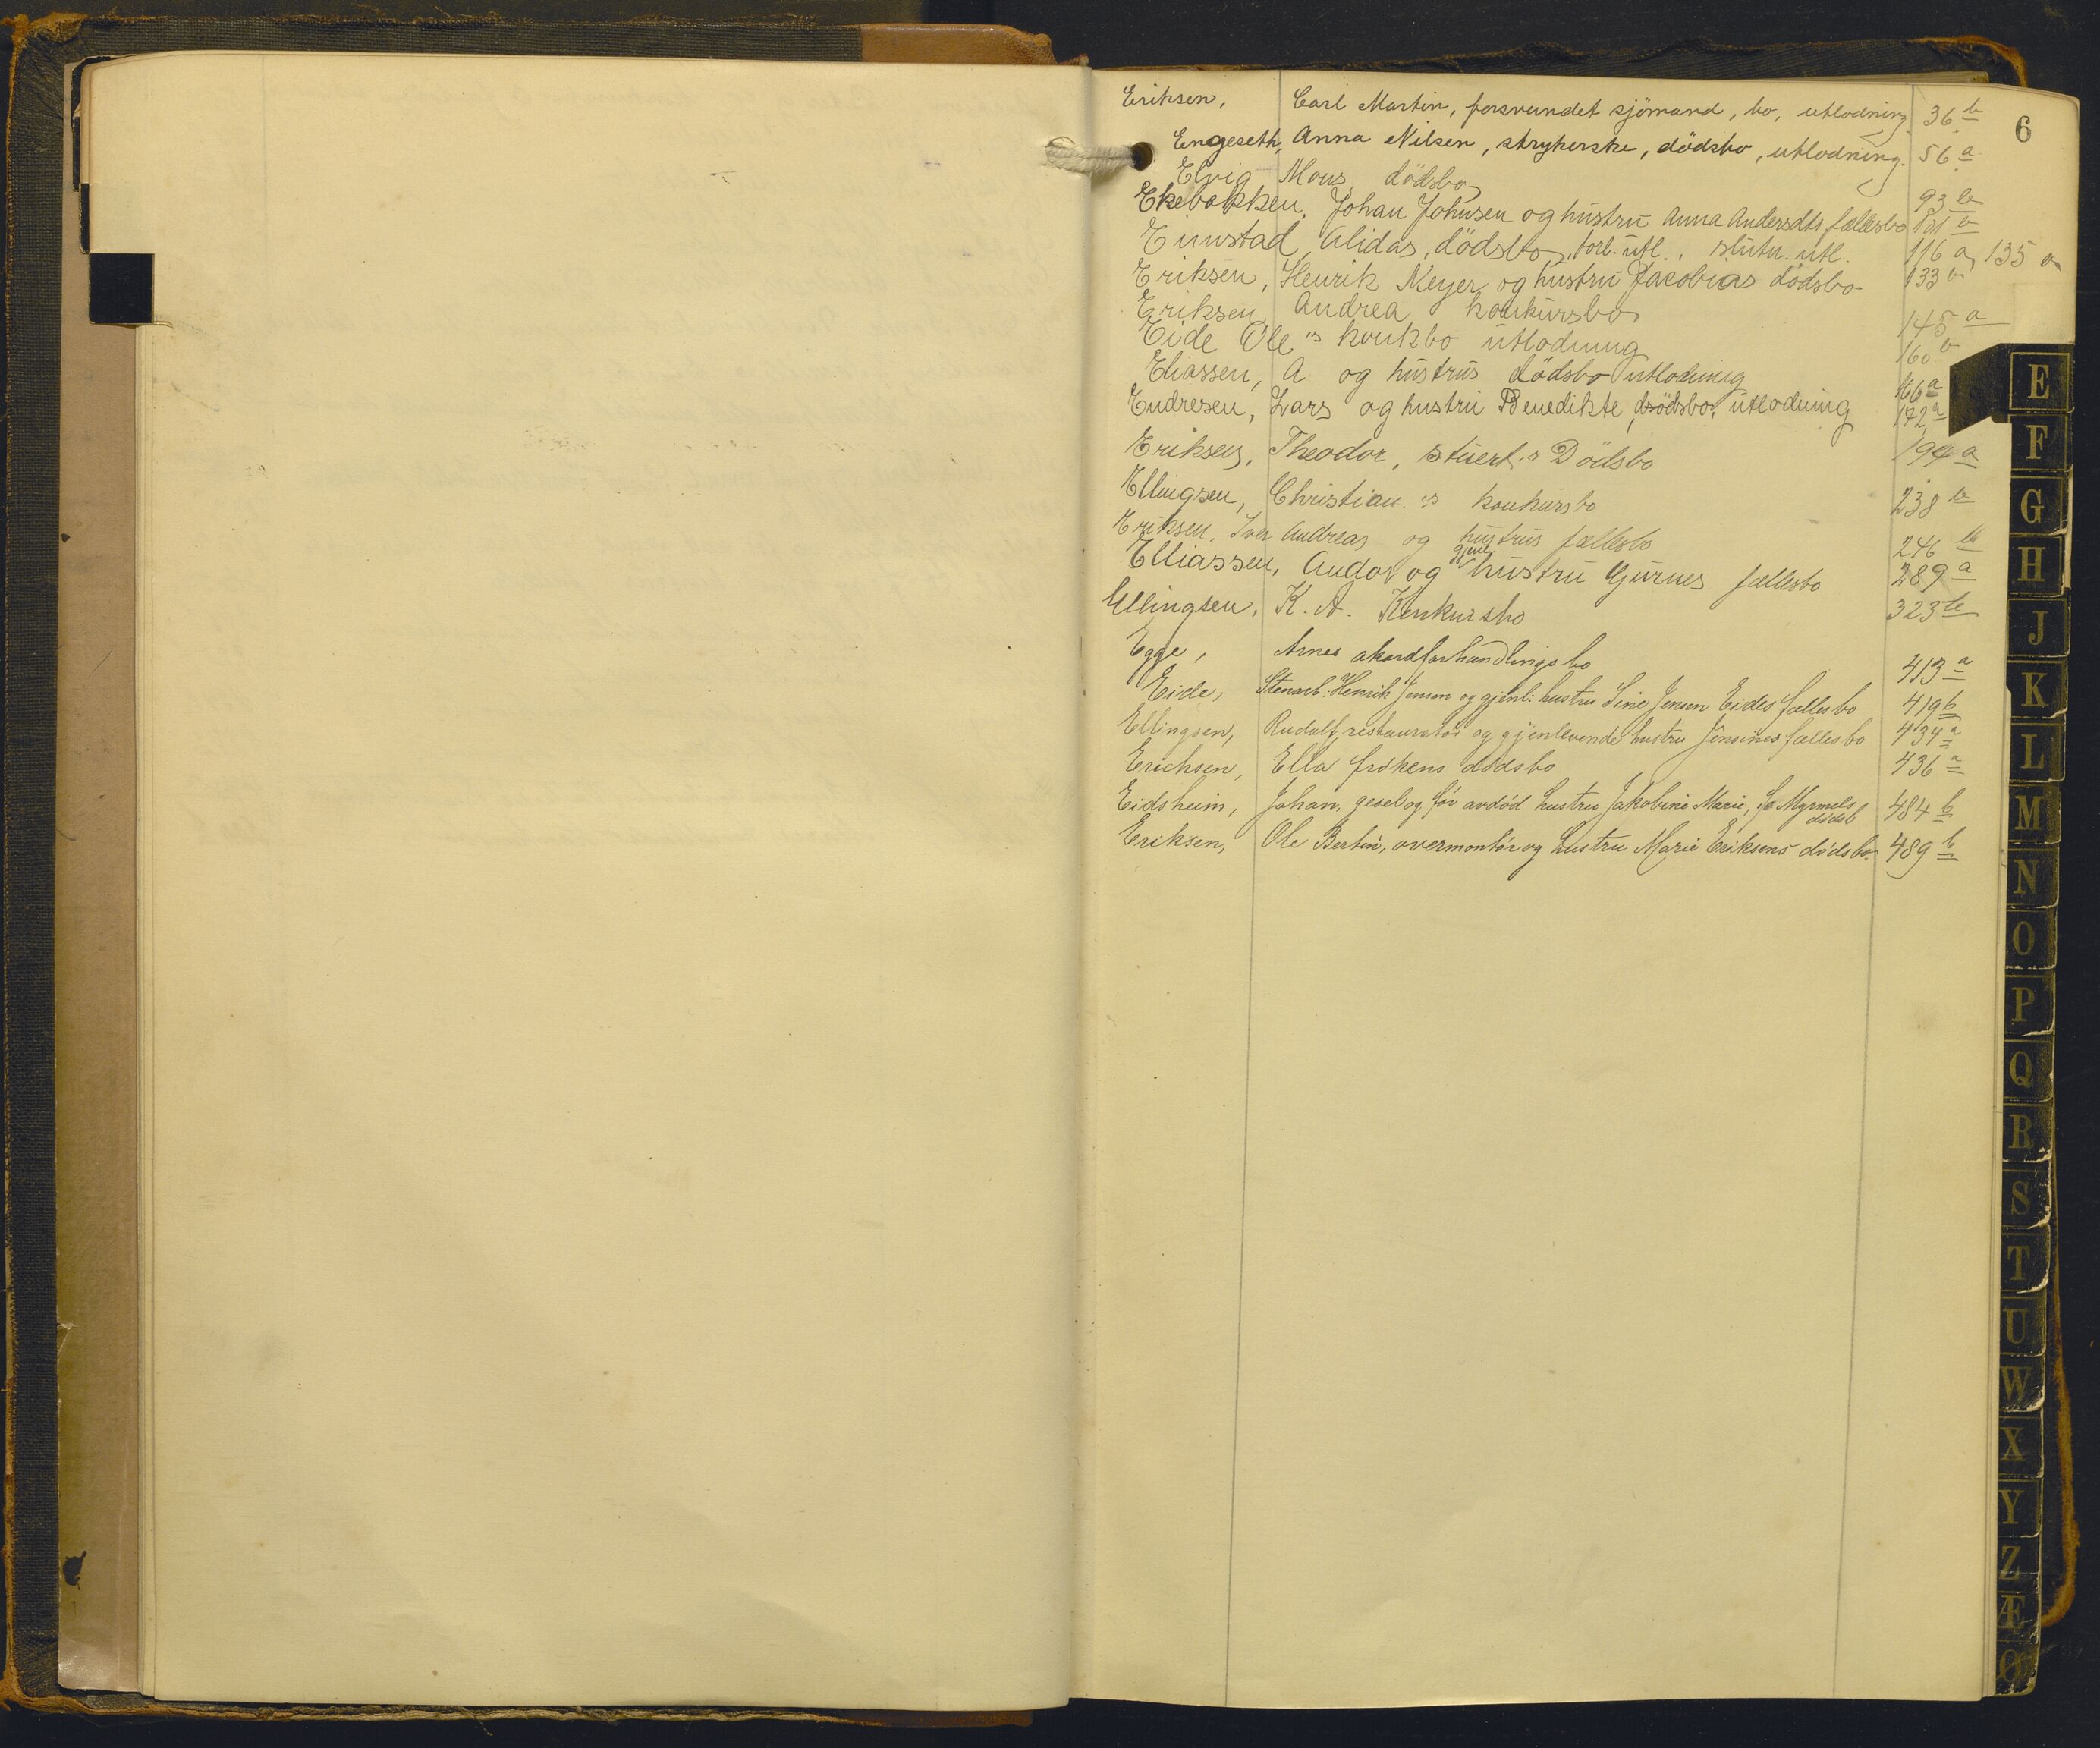 6
Eriksen, Carl Martin, forsvundet sjömand, bo, utlodning 36 b
Engeseth, Anna Nilsen, strykerske, dödsbo, utlodning. 56 a
Elvig Mons dödsbo 93 b
Ekebakken, Johan Johnsen og hustru Anna Andersdts fællesbo 101 b
Eimstad, Alidas, dödsbo, forl. utl., slutn. utl. 116 a, 135 a
Eriksen, Henrik Meyer og hustru Jacobias dödsbo 133 b
Eriksen, Andrea konkursbo 145 a
Eide Ole's konkbo utlodning 160 b
Eliassen, A og hustrus dödsbo utlodning 166 a
Endresen, Lars og hustru Benedikte, dödsbo, utlodning 172 a
Eriksen, Theodor, stuert's Dödsbo 194 a
Ellingsen, Christian's konkursbo 238 b
Eriksen, Iver Andreas og hustrus fællesbo 246 b
Elliassen, Andor og gjenl hustru Gurines fællesbo 289 a
Ellingsen, K. A. Konkursbo 323 b
Egge, Arnes akordforhandlingsbo 413 a
Eide, Stenarb: Henrik Jensen og gjenl: hustru Sine Jensen Eides fællesbo 419 b
Ellingsen, Rudolf, restauratör og gjenlevende hustru Jensines fællesbo 434 a
Erichsen, Ella frökens dödsbo 436 a
Eidsheim, Johan, gesel og för avdöd hustru Jakobine Marie, f. Myrmels dödsb 484 b
Eriksen, Ole Bertin, overmontör og hustru Marie Eriksens dödsbo. 489 b
E
F
G
H
J
K
L
M
N
O
P
Q
R
S
T
U
W
X
Y
Z
Æ
Ø